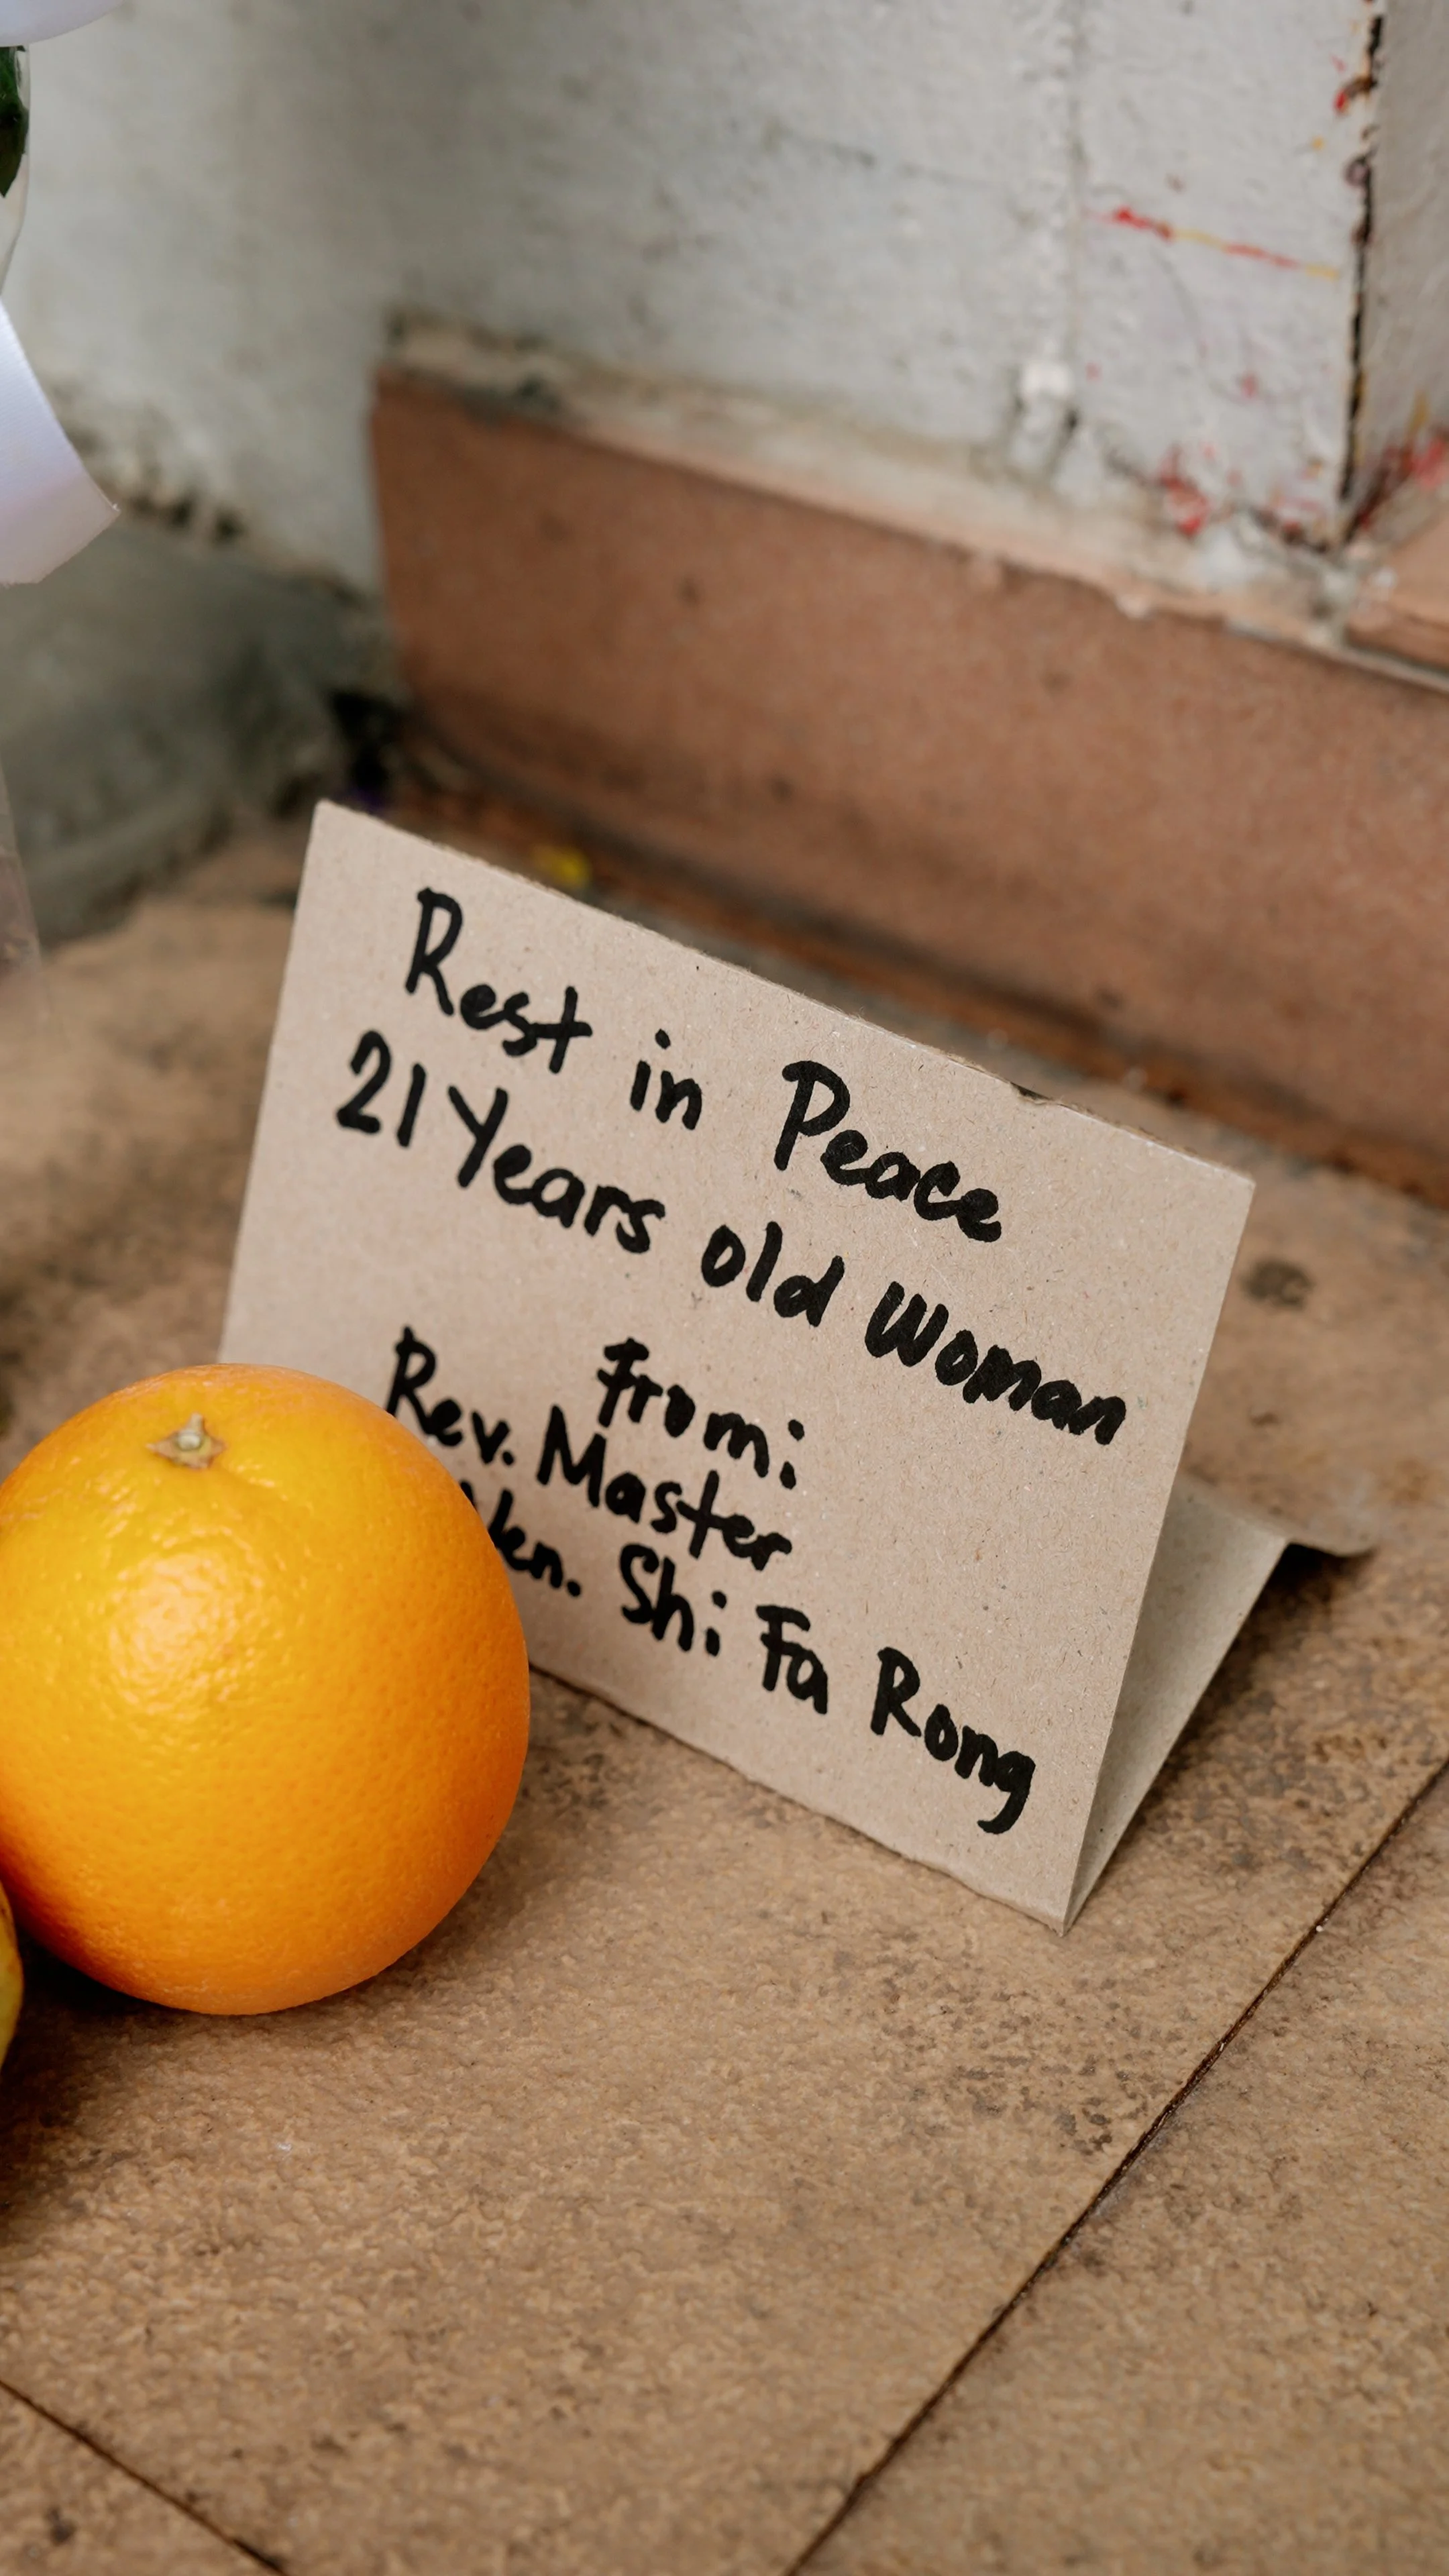 Rest in Peace
21 Years old Woman
From:
Rev. Master
Ven. Shi Fa Rong